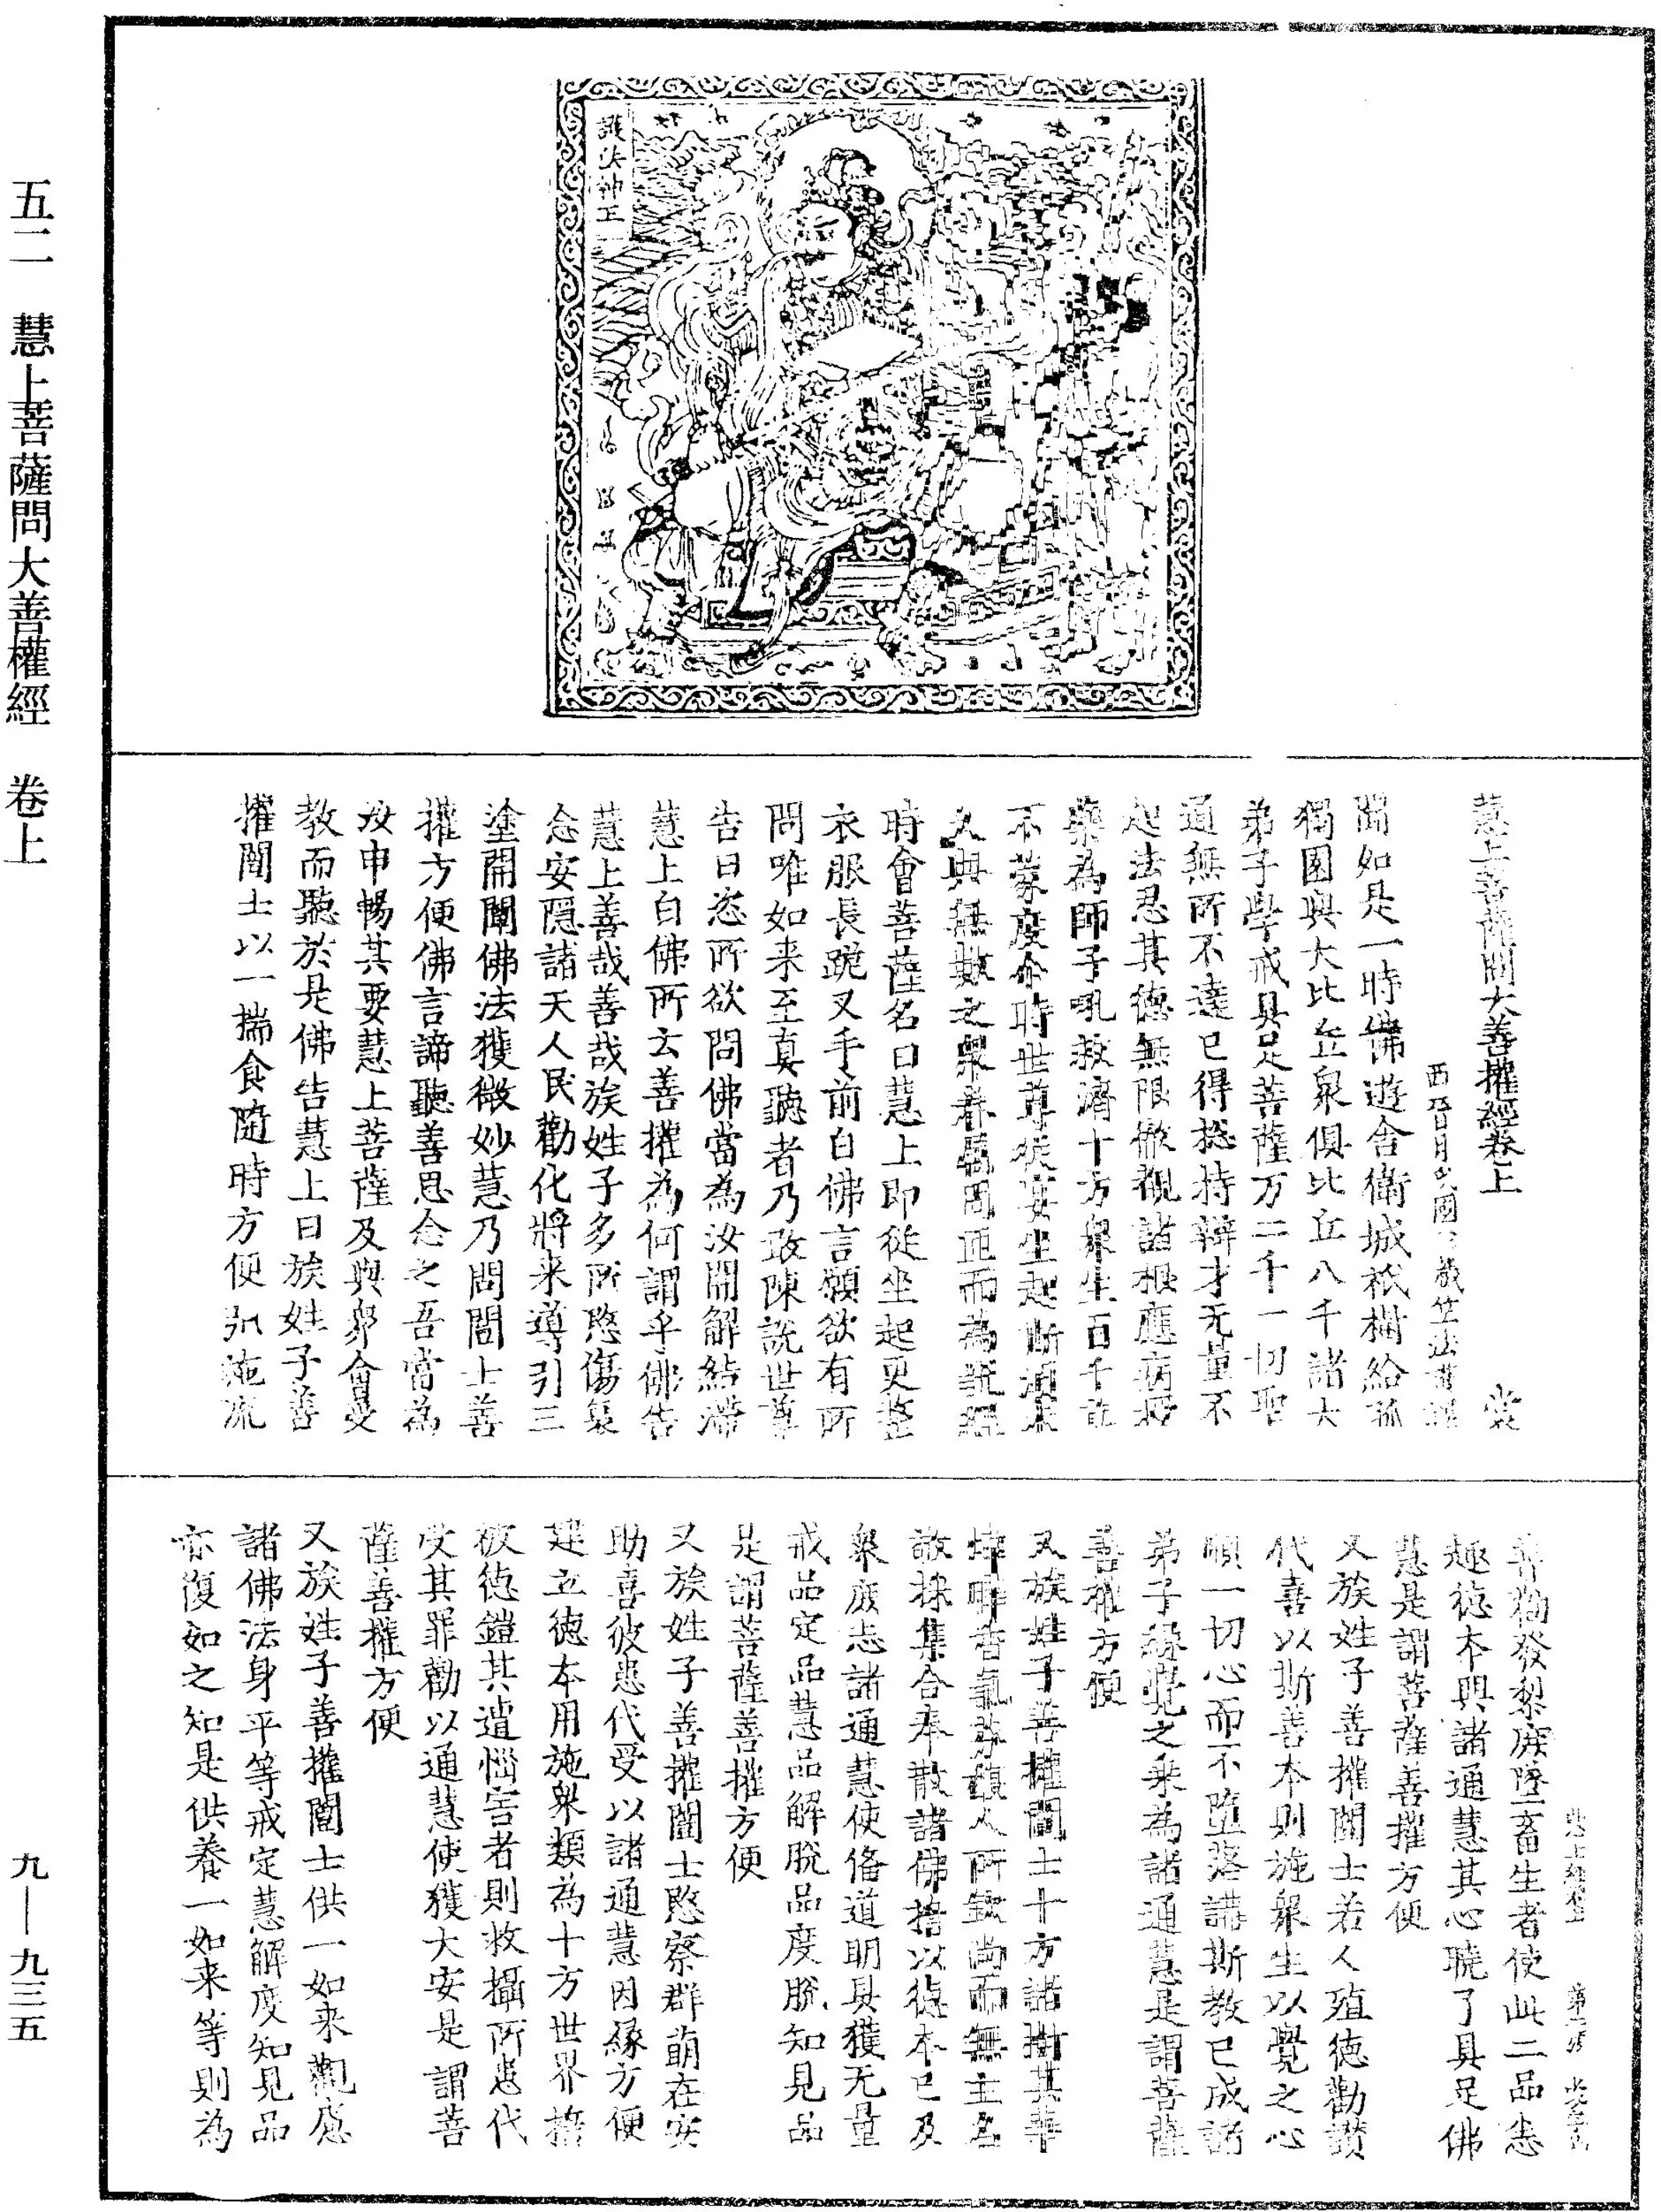 五二　慧上菩薩問大善權經　卷上
九—九三五
護法神王
慧上菩薩問大善權經卷上　裳
西晉月氏國三藏竺法護譯
聞如是一時佛遊舍衛城祇樹給孤
獨園與大比丘衆俱比丘八千諸大
弟子學戒具足菩薩万二千一切聖
通無所不達已得揔持辯才无量不
起法忍其德無限徹覩諸根應病授
藥為師子吼救濟十方衆生百千
不蒙度尒時世尊從宴坐起
久與無數之眾眷屬周匝而為說經
時會菩薩名曰慧上即從坐起更整
衣服長跪叉手前白佛言願欲有所
問唯如来至真聽者乃敢陳說世尊
告曰恣所欲問佛當為汝開解結滯
慧上白佛所云善權為何謂乎佛告
慧上善哉善哉族姓子多所愍傷哀
念安隱諸天人民勸化將来導引三
塗開闡佛法獲微妙慧乃問闓士善
權方便佛言諦聽善思念之吾當為
汝申暢其要慧上菩薩及與衆會受
教而聽於是佛告慧上曰族姓子善
權闓士以一揣食隨時方便弘施流
慧上經卷上　第二張　裳字号
普獨發黎庶墮畜生者使此二品悉
趣德本與諸通慧其心曉了具足佛
慧是謂菩薩善權方便
又族姓子善權闓士若人殖德勸讃
代喜以斯善本則施衆生以覺之心
順一切心而不墮落講斯教已成諸
弟子緣覺之乘為諸通慧是謂菩薩
善權方便
又族姓子善權闓士十方諸樹其華
煒曄香氣芬馥人所欽尚而無主名
散採集合奉散諸佛捨以德本已及
衆庶志諸通慧使俻道明具獲无量
戒品定品慧品解脫品度脫知見品
是謂菩薩善權方便
又族姓子善權闓士愍察群萌在安
助喜彼患代受以諸通慧因緣方便
建立德本用施衆類為十方世界捨
被德鎧其遭惱害者則救攝所患代
受其罪勸以通慧使獲大安是謂菩
薩善權方便
又族姓子善權闓士供一如来觀庶
諸佛法身平等戒定慧解度知見品
亦復如之知是供養一如来等則為